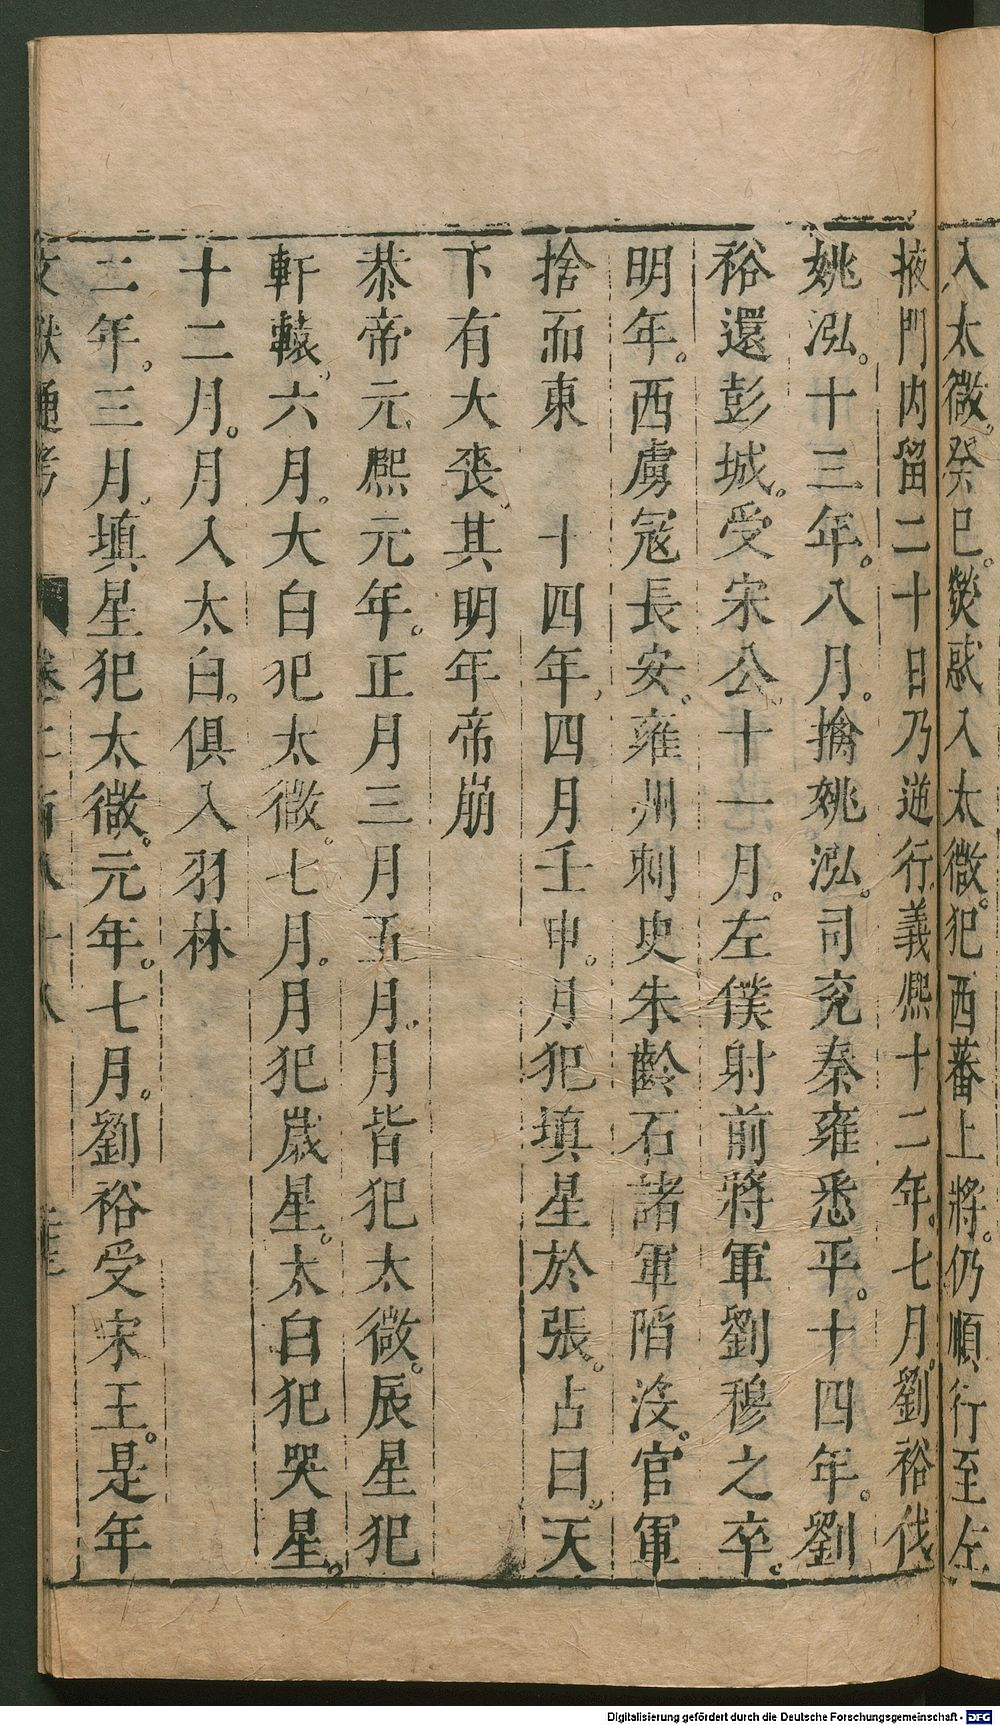 入太微。癸巳。熒惑入太微。犯西蕃上將。仍順行至左
掖門內留二十日乃逆行。義熙十二年。七月。劉裕伐
姚泓。十三年。八月。擒姚泓。司兗秦雍悉平。十四年。劉
裕還彭城。受宋公。十一月。左僕射前將軍劉穆之卒。
明年。西虜寇長安。雍州刺史朱齡石諸軍陷沒。官軍
捨而東　十四年。四月壬申。月犯填星於張。占曰。天
下有大喪。其明年帝崩
恭帝元熙元年。正月三月五月。月皆犯太微。辰星犯
軒轅。六月。大白犯太微。七月。月犯歲星。太白犯哭星。
十二月。月入太白。俱入羽林
二年。三月。填星犯太微。元年。七月。劉裕受宋王。是年
文獻通考　卷二百八十八
Digitalisierung gefördert durch die Deutsche Forschungsgemeinschaft - DFG